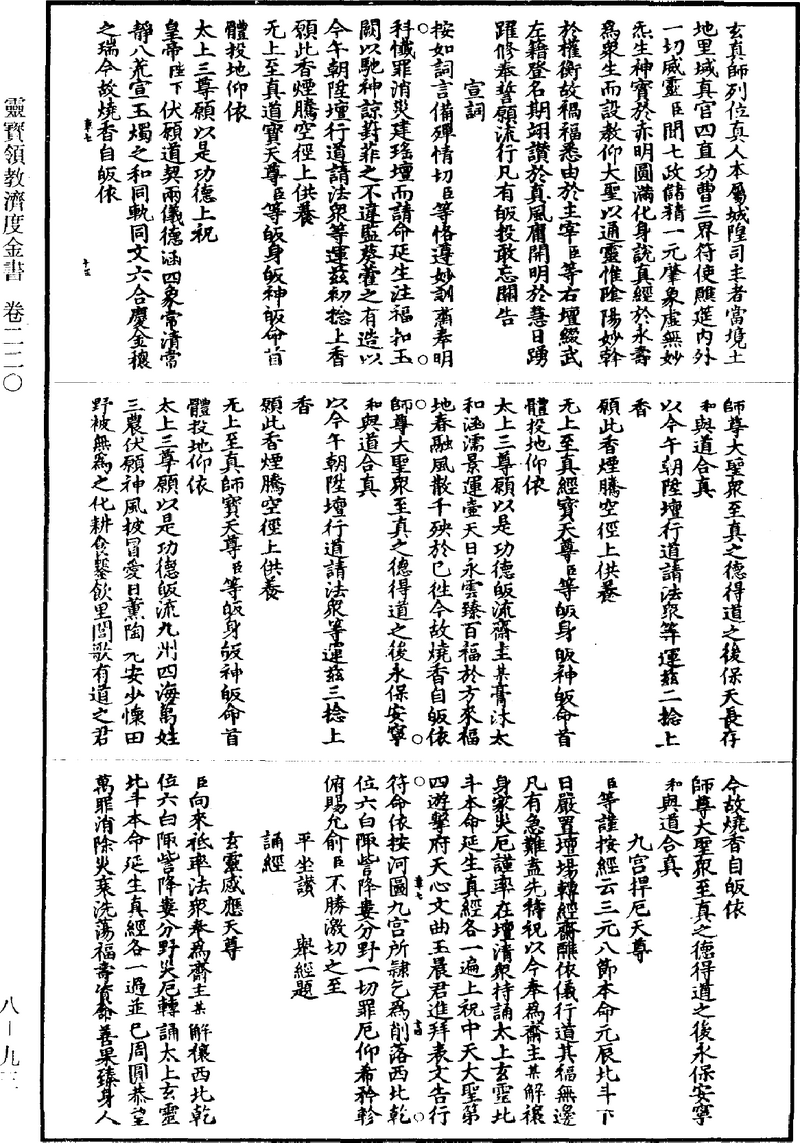 玄真師列位真人本屬城隍司主者當境土
地里域真官四直功曹三界符使醮筵內外
一切威靈臣聞七政儲精一元肇象虛無妙
炁生神寶於赤明圓滿化身說真經於永壽
爲衆生而設教仰大聖以通靈惟陰陽妙斡
於權衡故禍福悉由於主宰臣等右壇綴武
左籍登名期翊讚於真風膺開明於慧日踴
躍修奉誓願流行凡有皈投敢忘關告
宣詞
按如詞言備殫情切臣等恪遵妙訓肅奉明
科懺罪消災建瑤壇而請命延生注福扣玉
闕以馳神諒葑菲之不遺監葵藿之有造以
今午朝陞壇行道請法衆等運茲初捻上香
願此香煙騰空徑上供養
无上至真道寶天尊臣等皈身皈神皈命首
體投地仰依
太上三尊願以是功德上祝
皇帝陛下伏願道契兩儀德涵四象常清常
靜八荒宣玉燭之和同軌同文六合慶金穰
之瑞今故燒香自皈依
章七
十三
師尊大聖衆至真之德得道之後保天長存
和與道合真
以今午朝陞壇行道請法衆等運茲二捻上
香
願此香煙騰空徑上供養
无上至真經寶天尊臣等皈身皈神皈命首
體投地仰依
太上三尊願以是功德皈流齋主某膏沐太
和涵濡景運壺天日永雲臻百福於方來福
地春融風散千殃於已徃今故燒香自皈依
師尊大聖衆至真之德得道之後永保安寧
和與道合真
以今午朝陞壇行道請法衆等運茲三捻上
香
願此香煙騰空徑上供養
无上至真師寶天尊臣等皈身皈神皈命首
體投地仰依
太上三尊願以是功德皈流九州四海萬姓
三農伏願神風披冒愛日薰陶九安少懷田
野被無爲之化耕食鑿飲里閭歌有道之君
今故燒香自皈依
師尊大聖衆至真之德得道之後永保安寧
和與道合真
九宮捍厄天尊
臣等謹按經云三元八節本命元辰北斗下
日嚴置壇場轉經齋醮依儀行道其福無邊
凡有急難盍先禱祝以今奉爲齋主某解禳
身家災厄謹率在壇清衆持誦太上玄靈北
斗本命延生真經各一遍上祝中天大聖第
四遊擊府天心文曲玉晨君進拜表文告行
符命依按河圖九宮所隷乞爲削落西北乾
位六白陬訾降婁分野一切罪厄仰希矜軫
俯賜允俞臣不勝激切之至
章七
十四
平坐讚 舉經題
誦經
玄靈感應天尊
臣向來祗率法衆奉爲齋主某解禳西北乾
位六白陬訾降婁分野災厄轉誦太上玄靈
北斗本命延生真經各一過並已周圓恭望
萬罪消除災衰洗蕩福壽資命善果臻身人
靈寶領教濟度金書 卷二二〇
八－九三